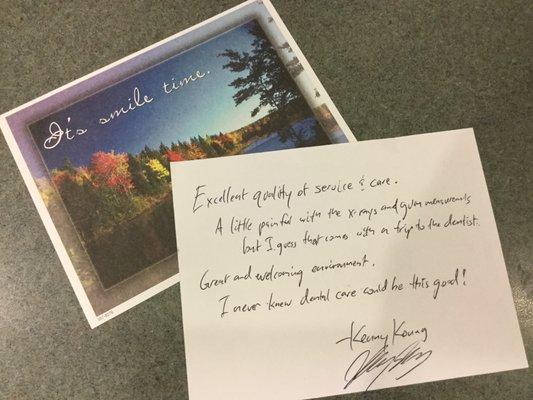 It's smile time.
Excellent quality of service & care.
A little painful with the x-rays and gum measurements
but I guess that comes with a trip to the dentist.
Great and welcoming environment.
I never knew dental care would be this good!
-Kenny Koung